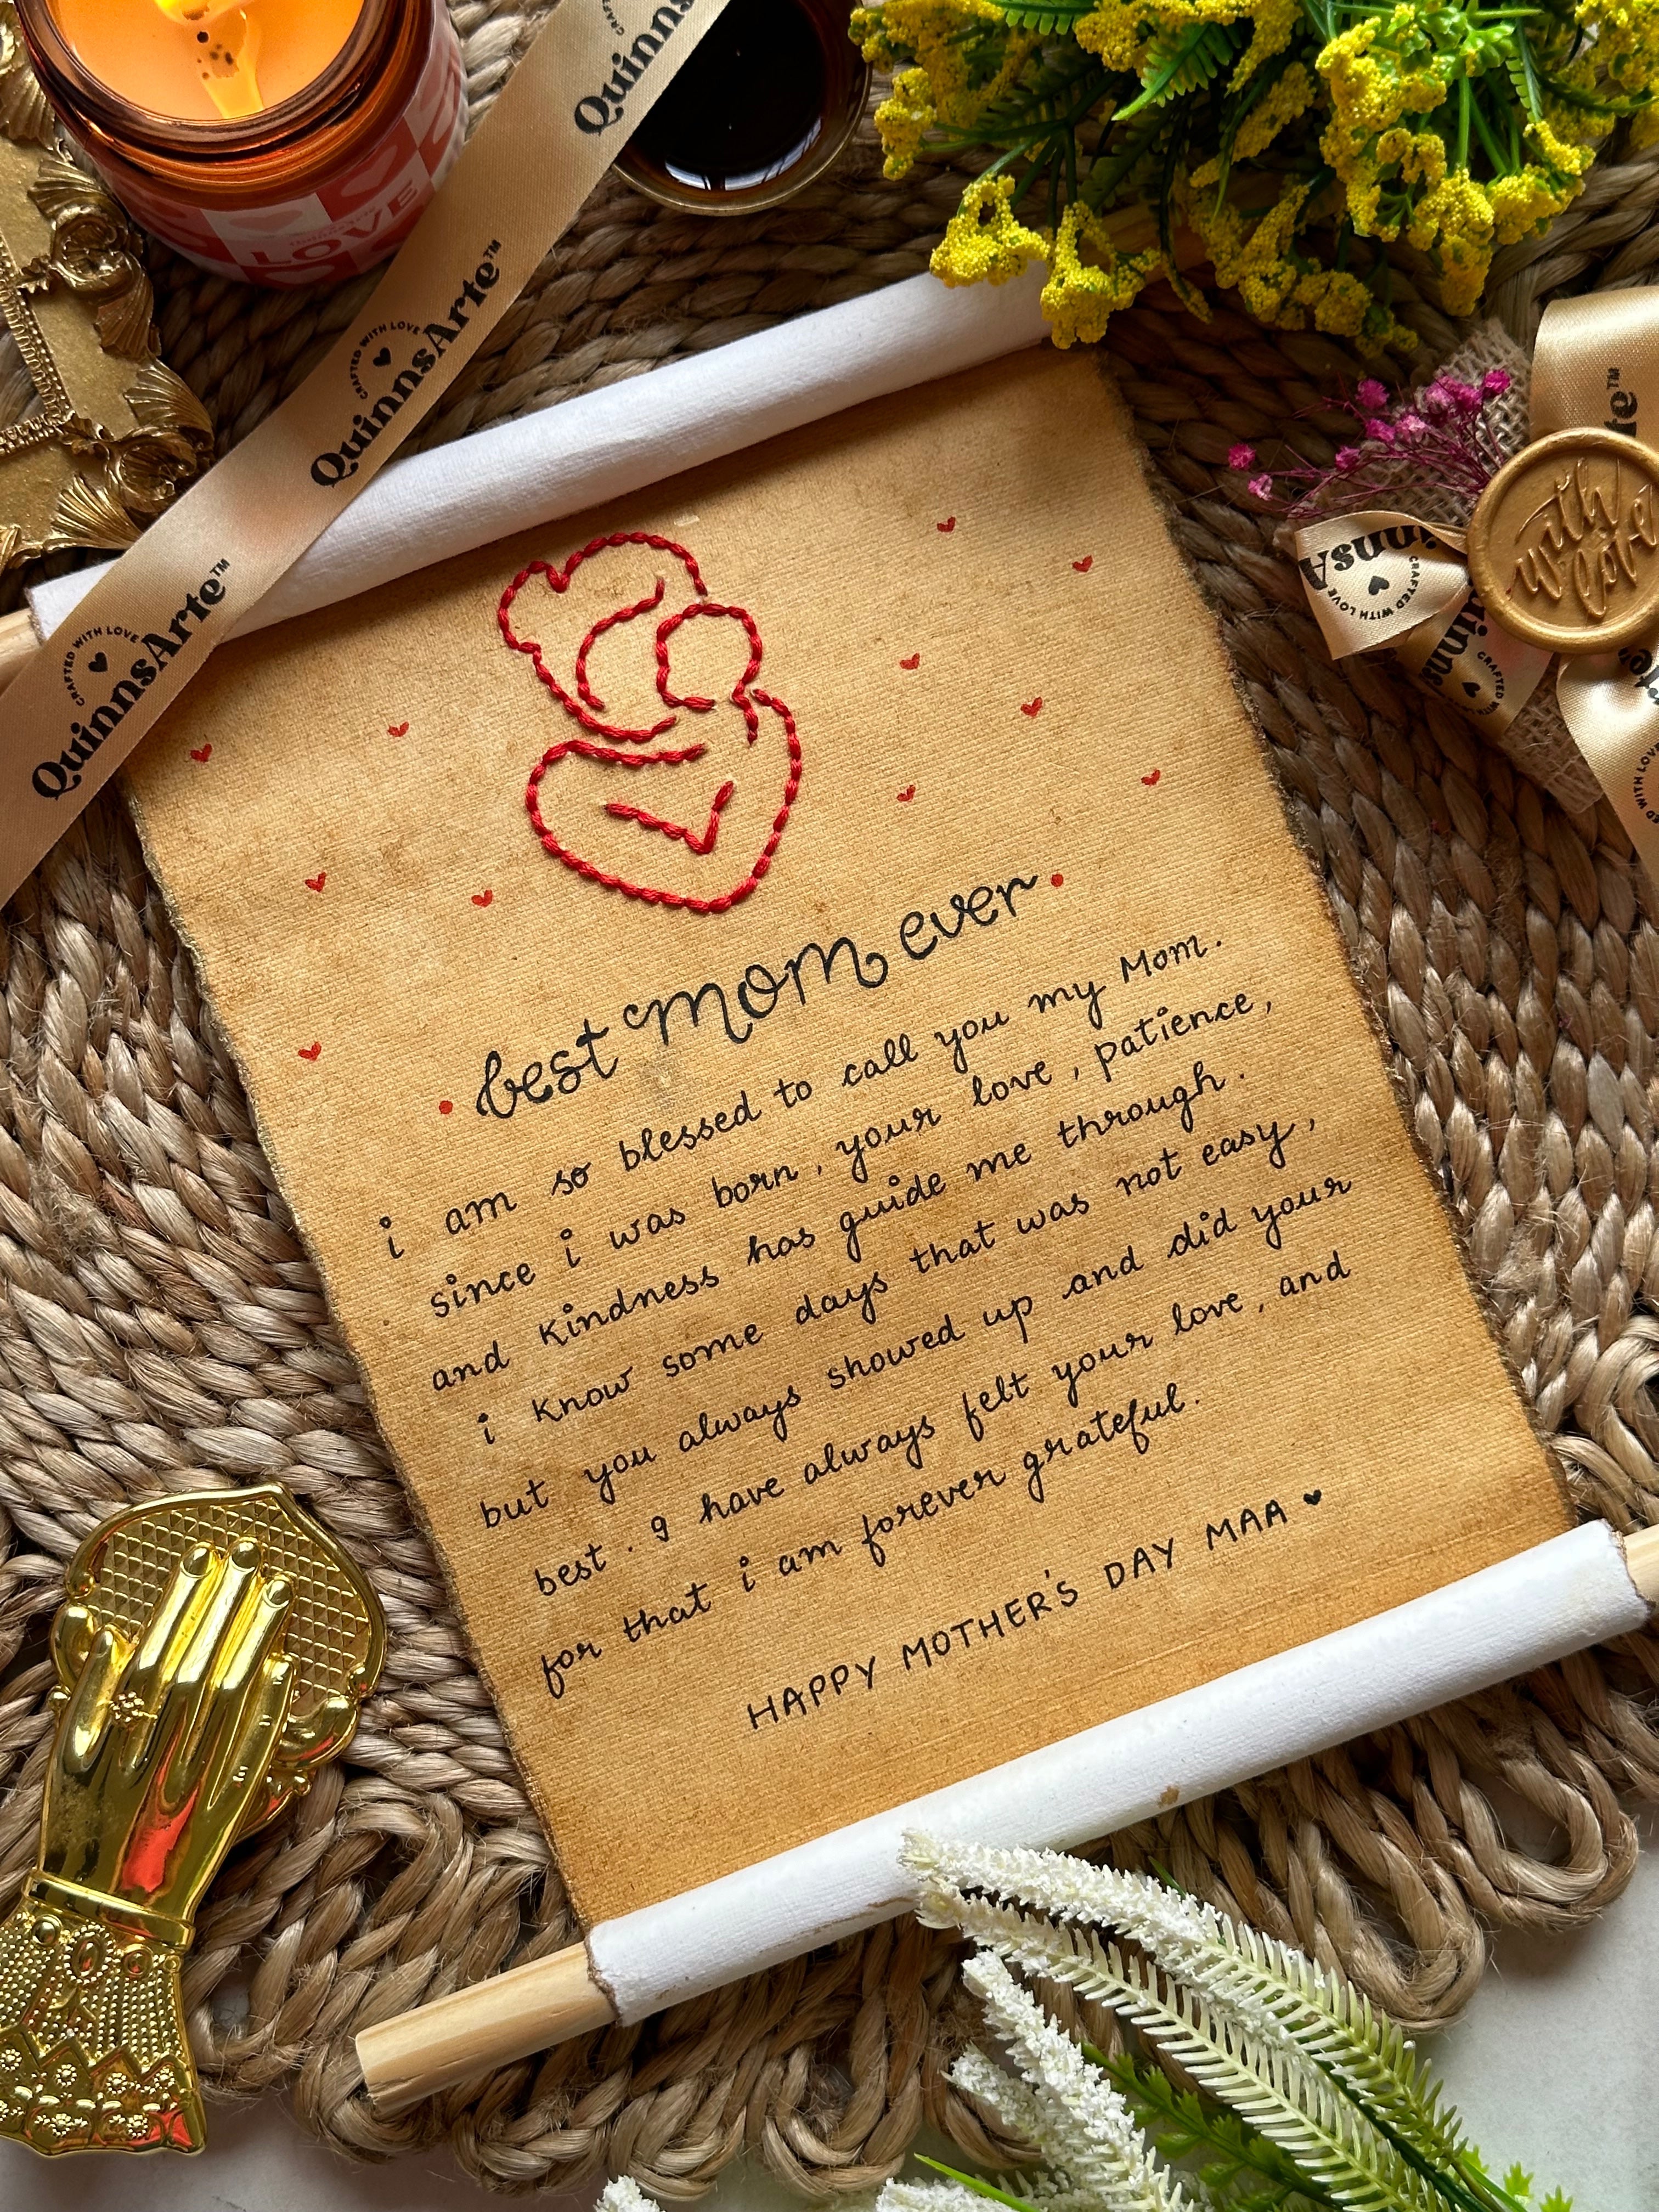 LOVE
Quinns
CRAFTED WITH LOVE
QuinnsArte™
CRAFTED WITH LOVE
QuinnsArte™
with
love
CRAFTED WITH LOVE
best mom ever
i am so blessed to call you my Mom.
since i was born, your love, patience,
and kindness has guide me through.
i know some days that was not easy,
but you always showed up and did your
best. I have always felt your love, and
for that i am forever grateful.
HAPPY MOTHER'S DAY MAA